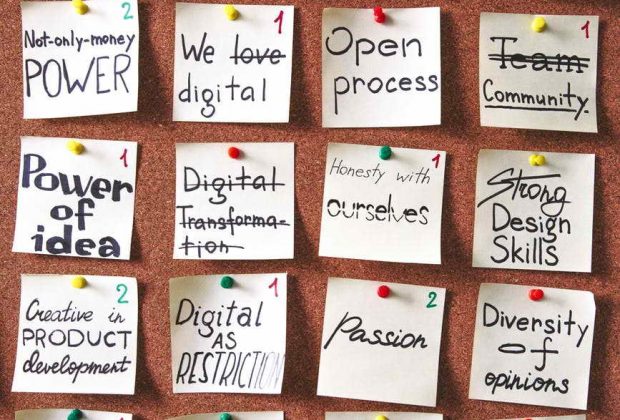 2
Not-only-money
POWER
1
We love
digital
Open
process
1
Team
Community.
1
Power
of
idea
Digital
Transforma-
tion
1
Honesty with
ourselves
Strong
Design
Skills
2
Creative in
PRODUCT
development
1
Digital
AS
RESTRICTION
2
Passion
Diversity
of
opinions